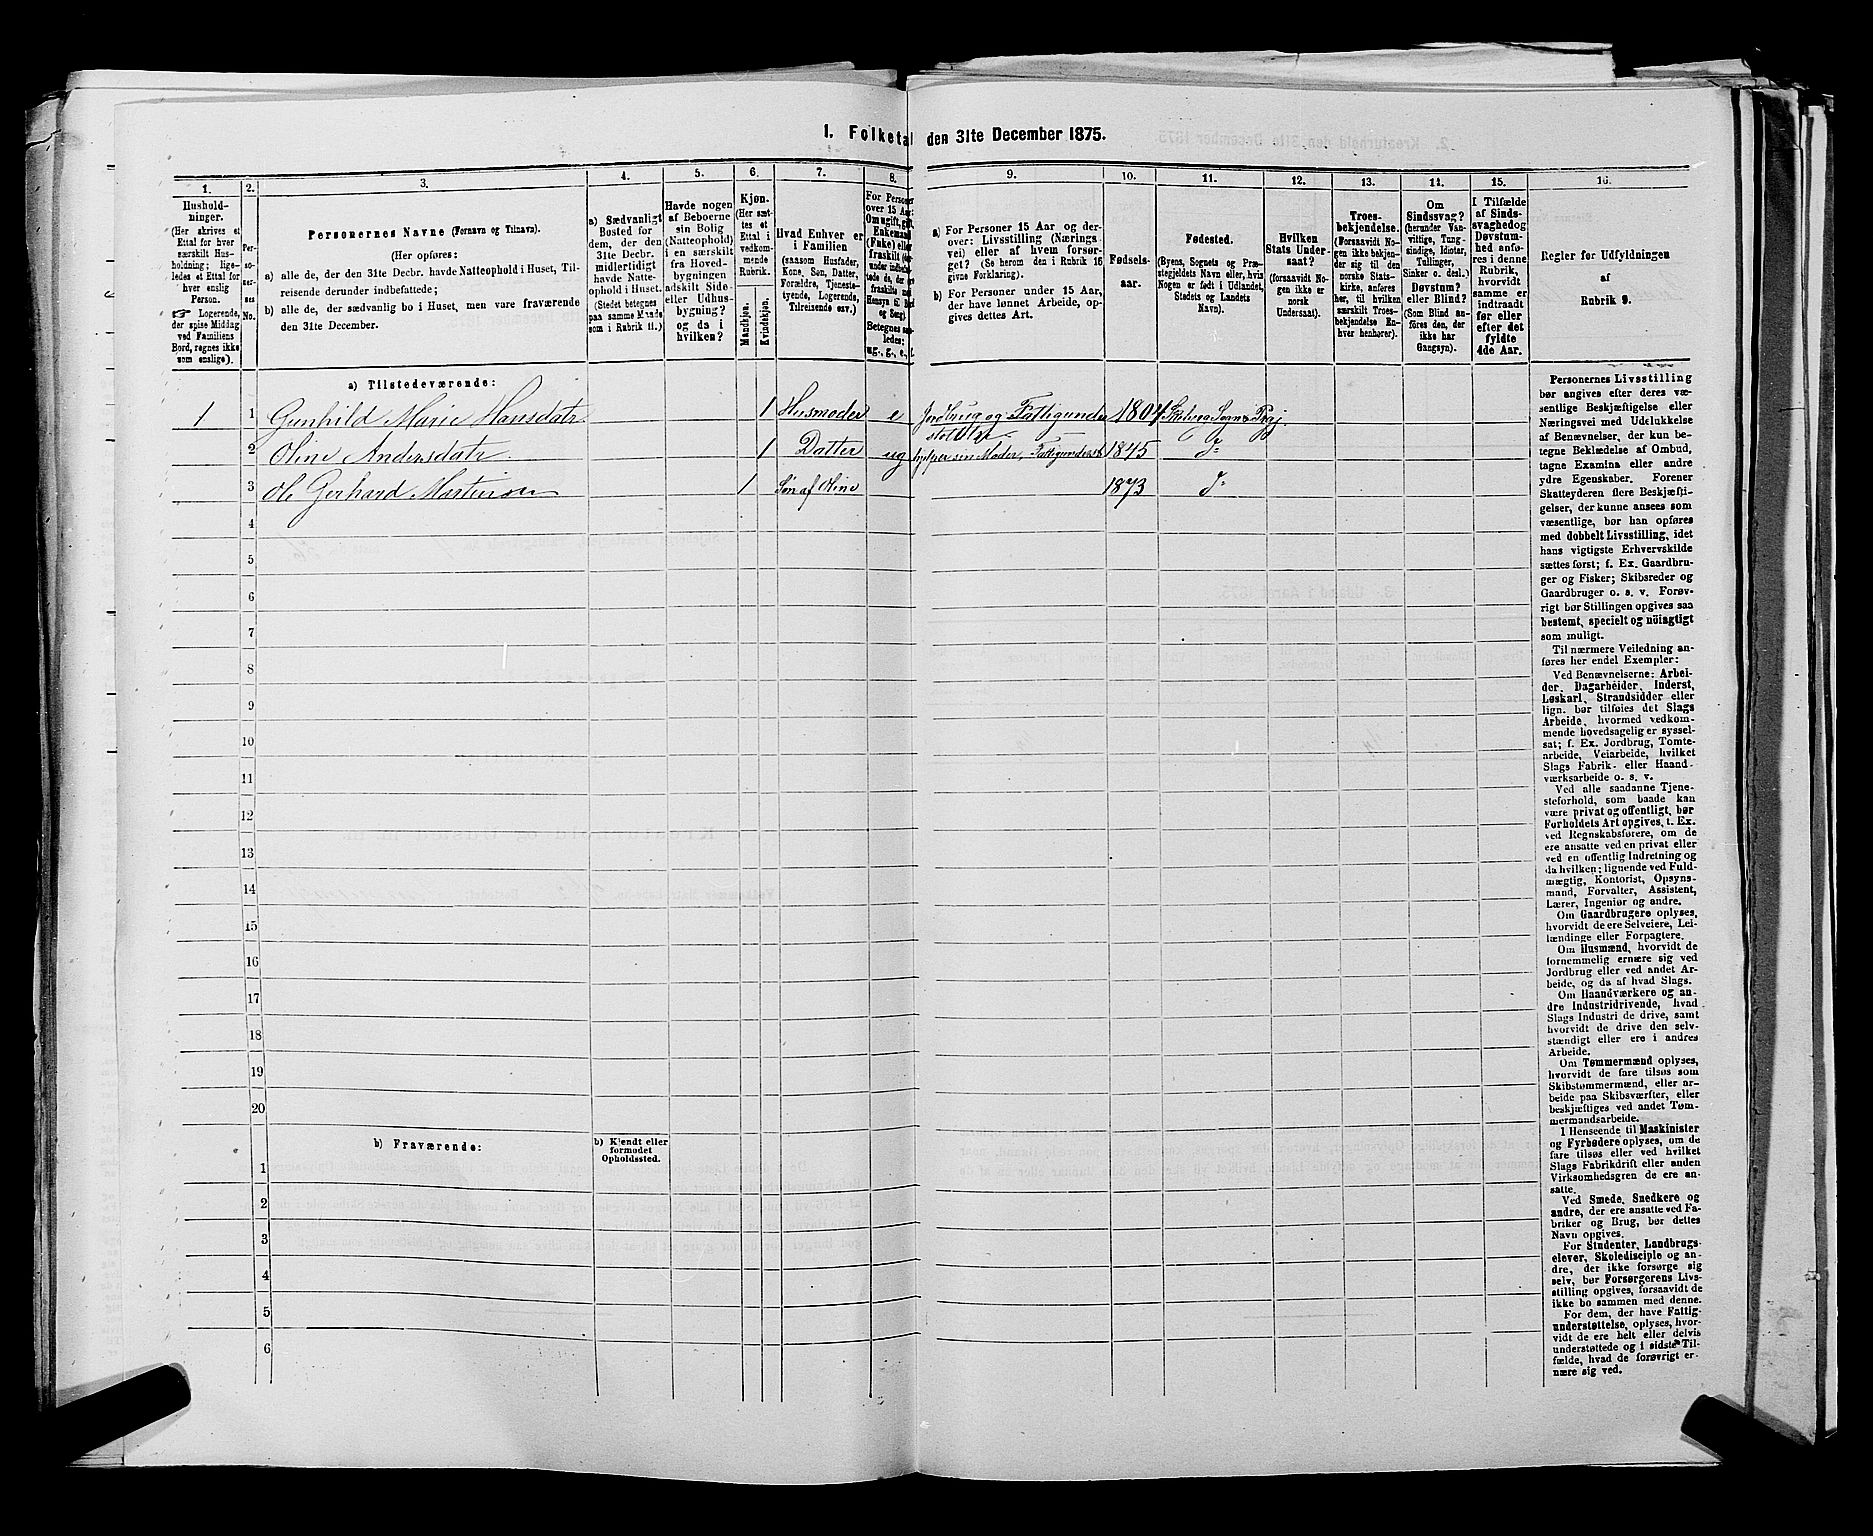 1. Folketal den 31te December 1875.
1.
2.
3.
4.
5.
6.
7.
8.
9.
10.
11.
12.
13.
14.
15.
16.
Hushold-
ninger.
(Her skrives et
Ettal for hver
særskilt Hus-
holdning; lige-
ledes et Ettal for
hver enslig
Person.
☞ Logerende,
der spise Middag
ved Familiens
Bord, regnes ikke
som enslige).
Per-
so-
ner-
nes
No.
Personernes Navne (Fornavn og Tilnavn).
(Her opføres:
a) alle de, der den 31te Decbr. havde Natteophold i Huset, Til-
reisende derunder indbefattede;
b) alle de, der sædvanlig bo i Huset, men vare fraværende
den 31te December.
a) Sædvanligt
Bosted for
dem, der den
31te Decbr.
midlertidigt
havde Natte-
ophold i Huset.
(Stedet betegnes
paa samme Maade
som i Rubrik 11.)
Havde nogen
af Beboerne
sin Bolig
(Natteophold)
i en særskilt
fra Hoved-
bygningen
adskilt Side-
eller Udhus-
bygning?
og da i
hvilken?
Kjøn.
(Her sæt-
tes et
Ettal i
vedkom-
mende
Rubrik.
Mandkjøn.
Kvindekjøn.
Hvad Enhver er
i Familien
(saasom Husfader,
Kone, Søn, Datter,
Forældre, Tjeneste-
tyende, Logerende,
Tilreisende osv.)
For Personer
over 15 Aar:
Om ugift, gift,
Enkemand
(Enke) eller
fraskilt
Betegnes saa-
ledes:
ug., g., e., f.
a) For Personer 15 Aar og der-
over: Livsstilling (Nærings-
vei) eller af hvem forsør-
get? (Se herom den i Rubrik 16
givne Forklaring).
b) For Personer under 15 Aar,
der have lønnet Arbeide, op-
gives dettes Art.
Fødsels-
aar.
Fødested.
(Byens, Sognets og Præ-
stegjeldets Navn eller, hvis
Nogen er født i Udlandet,
Stedets og Landets
Navn).
Hvilken
Stats Under-
saat?
(forsaavidt No-
gen ikke er
norsk
Undersaat).
Troes-
bekjendelse.
(Forsaavidt No-
gen ikke bekjen-
der sig til den
norske Stats-
kirke, anføres
her, til hvilken
særskilt Troes-
bekjendelse En-
hver henhører).
Om
Sindssvag?
(herunder Van-
vittige, Tung-
sindige, Idioter,
Tullinger,
Sinker o. desl.)
Døvstum?
eller Blind?
(Som Blind an-
føres den, der
ikke har
Gangsyn).
I Tilfælde
af Sinds-
svaghed og
Døvstum-
hed anfø-
res i denne
Rubrik,
hvorvidt
samme er
indtraadt
før eller
efter det
fyldte
4de Aar.
Regler før Udfyldningen
af
Rubrik 9.
a) Tilstedeværende:
1 1 Gunhild Marie Hansdatr 1 Husmoder e Jordbrug og Fattigunder 1804 Sogn
støttelse
2 Oline Andersdatr 1 Datter ug hjelper sin Moder, Fattigunderst. 1845 do
3 Ole Gerhard Martinsen 1 Søn af Oline 1873 do
4
5
6
7
8
9
10
11
12
13
14
15
16
17
18
19
20
b) Fraværende:
b) Kjendt eller
formodet
Opholdssted.
1
2
3
4
5
6
Personernes Livsstilling
bør angives efter deres væ-
sentlige Beskjæftigelse eller
Næringsvei med Udelukkelse
af Benævnelser, der kun be-
tegne Beklædelse af Ombud,
tagne Examina eller andre
ydre Egenskaber. Forener
Skatteyderen flere Beskjæfti-
gelser, der kunne ansees som
væsentlige, bør han opføres
med dobbelt Livsstilling, idet
hans vigtigste Erhvervskilde
sættes først; f. Ex. Gaardbru-
ger og Fisker; Skibsreder og
Gaardbruger o. s. v. Forøv-
rigt bør Stillingen opgives saa
bestemt, specielt og nøiagtigt
som muligt.
Til nærmere Veiledning an-
føres her endel Exempler:
Ved Benævnelserne: Arbei-
der, Dagarbeider, Inderst,
Løskarl, Strandsidder eller
lign. bør tilføies det Slags
Arbeide, hvormed vedkom-
mende hovedsagelig er syssel-
sat; f. Ex. Jordbrug, Tomte-
arbeide, Veiarbeide, hvilket
Slags Fabrik- eller Haand-
værksarbeide o. s. v.
Ved alle saadanne Tjene-
steforhold, som baade kan
være privat og offentligt, bør
Forholdets Art opgives, t. Ex.
ved Regnskabsførere, om de
ere ansatte ved en privat eller
ved en offentlig Indretning og
da hvilken; lignende ved Fuld-
mægtig, Kontorist, Opsyns-
mand, Forvalter, Assistent,
Lærer, Ingeniør og andre.
Om Gaardbrugere oplyses,
hvorvidt de ere Selveiere, Lei-
lændinge eller Forpagtere.
Om Husmænd, hvorvidt de
fornemmelig ernære sig ved
Jordbrug eller ved andet Ar-
beide, og da af hvad Slags.
Om Haandværkere og an-
dre Industridrivende, hvad
Slags Industri de drive, samt
hvorvidt de drive den selv-
stændigt eller ere i andres
Arbeide.
Om Tømmermænd oplyses,
hvorvidt de fare tilsøs som
Skibstømmermænd, eller ar-
beide paa Skibsværfter, eller
beskjæftiges ved andet Tøm-
mermandsarbeide.
I Henseende til Maskinister
og Fyrbødere oplyses, om de
fare tilsøs eller ved hvilket
Slags Fabrikdrift eller anden
Virksomhedsgren de ere an-
satte.
Ved Smede, Snedkere og
andre, der ere ansatte ved Fa-
briker og Brug, bør dettes
Navn opgives.
For Studenter, Landbrugs-
elever, Skoledisciple og an-
dre, der ikke forsørge sig
selv, bør Forsørgerens Livs-
stilling opgives, forsaavidt de
ikke bo sammen med denne.
For dem, der have Fattig-
understøttelse, oplyses, hvor-
vidt de ere helt eller delvis
understøttede og i sidste Til-
fælde, hvad de forøvrigt er-
nære sig ved.